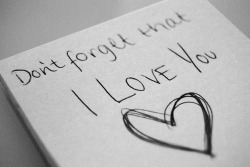 Don't forget that
I Love You